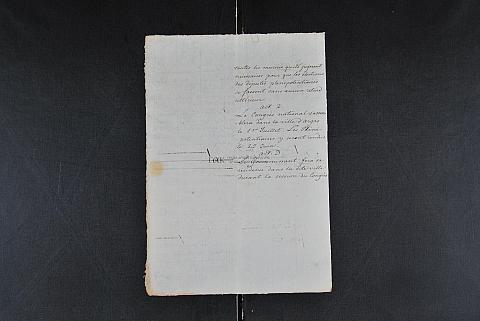 toutes les mesures qu'ils jugeront
nécessaires pour que les élections
des députés plénipotentiaires
se fassent sans aucun retard
ultérieur.
art. 2.
Le Congrès national s'assem-
blera dans la ville d'Argos
le 1er Juillet. Les Pléni-
potentiaires y seront rendus
le 25 Juin.
art. 3.
Le Gouvernement fera sa
résidence dans la dite ville
durant la session du Congrès